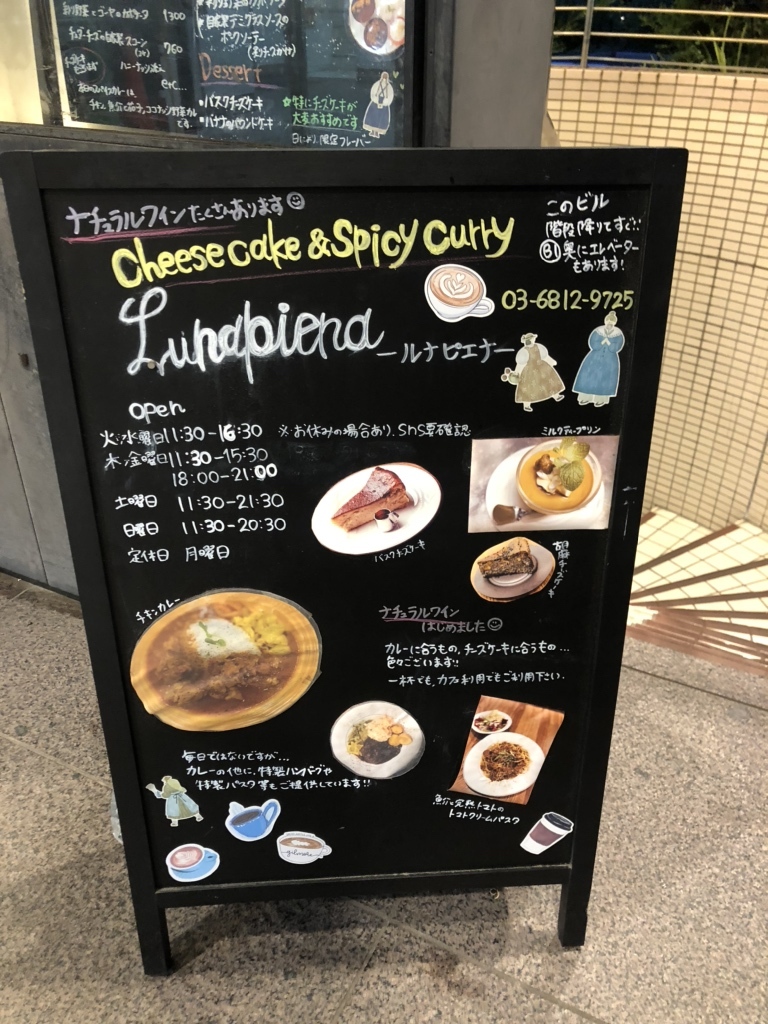 1300
自家製デミグラスソースの
ポークソーテー
760
Dessert
etc...
・バスクチーズケーキ
・バナナパウンドケーキ
☆特にチーズケーキが
大変おすすめです
日により、限定フレーバー
ナチュラルワインたくさんあります
Cheese cake & Spicy Curry
Lunapiena
ールナピエナー
このビル
階段降りてすぐ!!
B1 奥にエレベーター
もあります!
03-6812-9725
open
火・水曜日 11:30-16:30 ※お休みの場合あり、SNS要確認
木・金曜日 11:30-15:30
18:00-21:00
土曜日 11:30-21:30
日曜日 11:30-20:30
定休日 月曜日
ミルクティープリン
バスクチーズケーキ
胡麻チーズケーキ
チキンカレー
ナチュラルワイン
はじめました
カレーに合うもの、チーズケーキに合うもの...
色々ございます!!
一杯でも、カフェ利用でもご利用下さい。
毎日ではないですが...
カレーの他に、特製ハンバーグや
特製パスタ等もご提供しています!!
完熟トマトの
トマトクリームパスタ